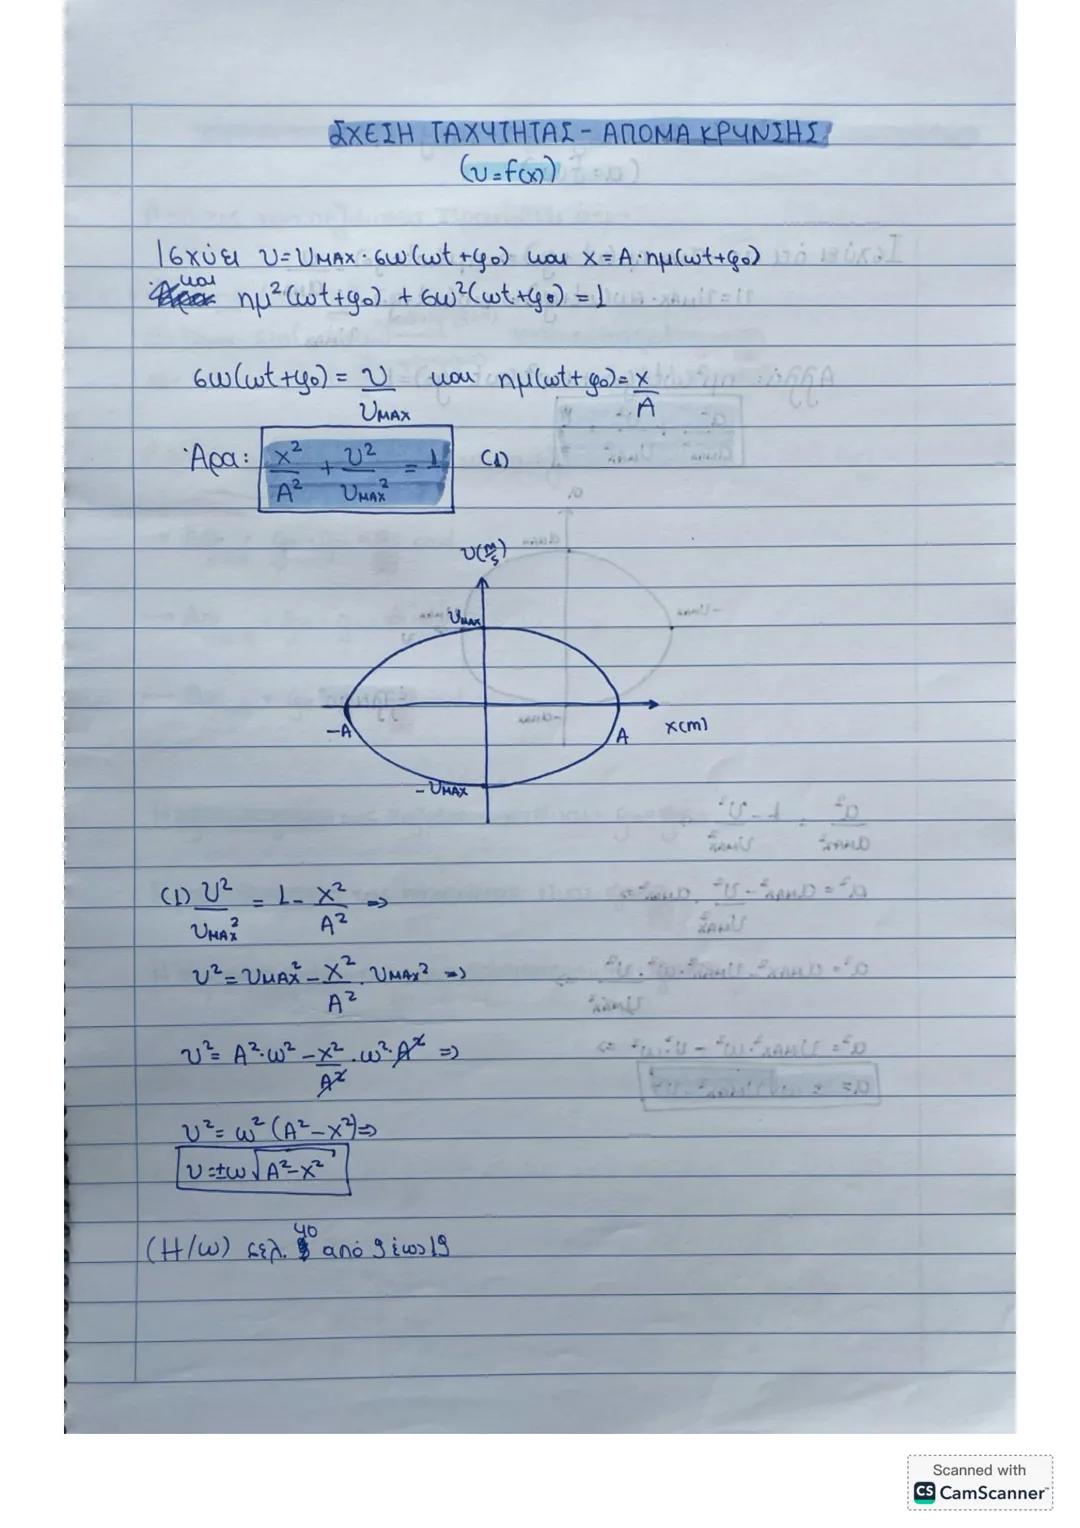 ΣΧΕΣΗ ΤΑΧΥΤΗΤΑΣ - ΑΠΟΜΑΚΡΥΝΣΗΣ:
(υ=f(x))
Ισχύει υ=υMAX·συν(ωt+φ0) και x=A·ημ(ωt+φ0)
και ημ²(ωt+φ0) + συν²(ωt+φ0) = 1
συν(ωt+φ0) = υ/υMAX και ημ(ωt+φ0) = x/A
Άρα: x²/A² + υ²/υMAX² = 1 (1)
υ(m/s)
υMAX
-A
A
x(m)
-υMAX
(1) υ²/υMAX² = 1 - x²/A² =>
υ² = υMAX² - x²/A² · υMAX² =>
υ² = A²·ω² - x²/A² · ω²·A² =>
υ² = ω² (A²-x²) =>
υ=±ω√A²-x²
(H/W) σελ. 40 από 9 έως 19
Scanned with
CS CamScanner